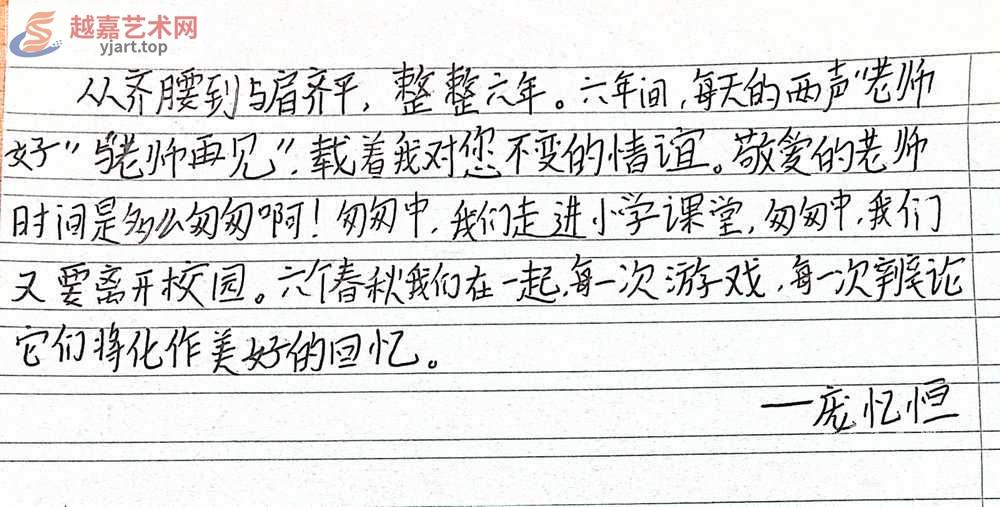 越嘉艺术网
yjart.top
从齐腰到与肩齐平，整整六年。六年间，每天的两声“老师
好”“老师再见”，载着我对您不变的情谊。敬爱的老师
时间是多么匆匆啊！匆匆中，我们走进小学课堂，匆匆中，我们
又要离开校园。六个春秋我们在一起，每一次游戏，每一次辩论
它们将化作美好的回忆。
—庞忆恒